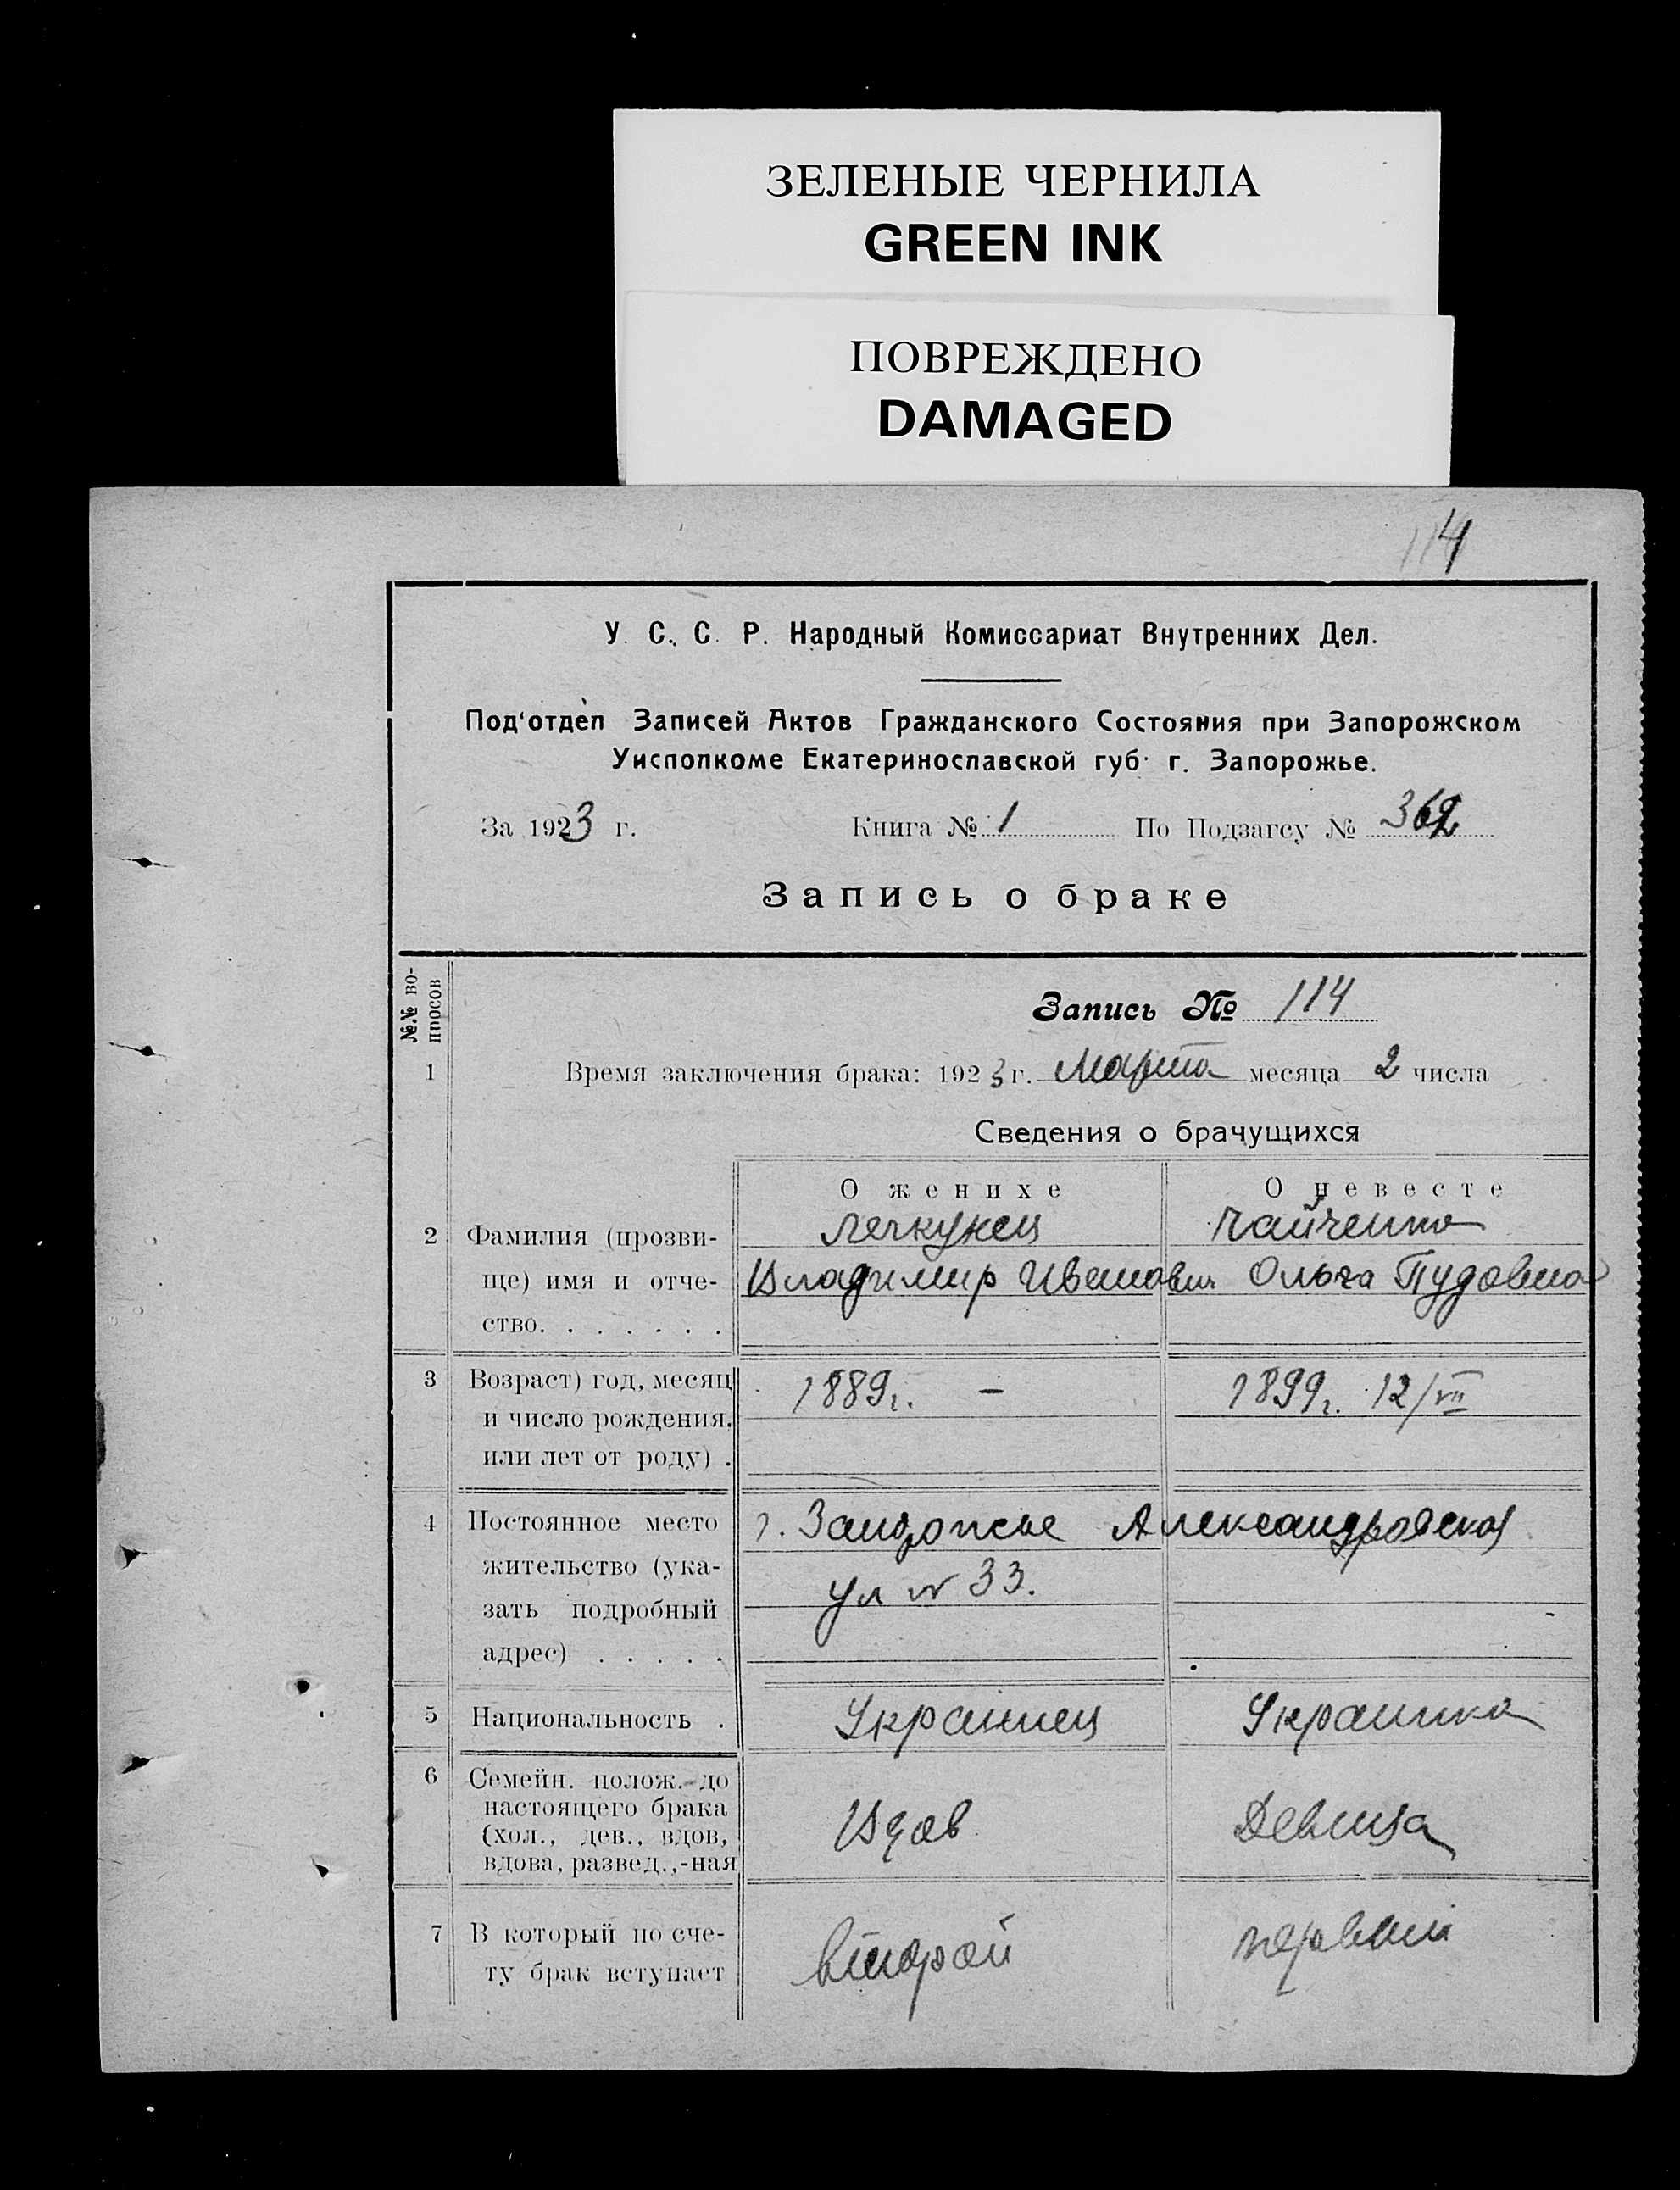 ЗЕЛЕНЫЕ ЧЕРНИЛА
GREEN INK
ПОВРЕЖДЕНО
DAMAGED
114
У. С. С. Р. Народный Комиссариат Внутренних Дел.
Под'отдел Записей Актов Гражданского Состояния при Запорожском
Уисполкоме Екатеринославской губ. г. Запорожье.
За 1923 г. Книга № 1 По Подзагсу № 362
Запись о браке
№№ во-
просов
Запись № 114
1 Время заключения брака: 1923 г. Марта месяца 2 числа
Сведения о брачущихся
О женихе О невесте
2 Фамилия (прозви- Чайченко
ще) имя и отче- Владимир Иванович Ольга Пудовна
ство. . . . . . .
3 Возраст) год, месяц 1889г. – 1899г. 12/VII
и число рождения.
или лет от роду) .
4 Постоянное место г. Запорожье Александровская
жительство (ука- ул № 33.
зать подробный
адрес) . . . . .
5 Национальность . Украинец Украинка
6 Семейн. полож. до
настоящего брака
(хол., дев., вдов, Вдов Девица
вдова, развед.,-ная
7 В который по сче- второй первый
ту брак вступает